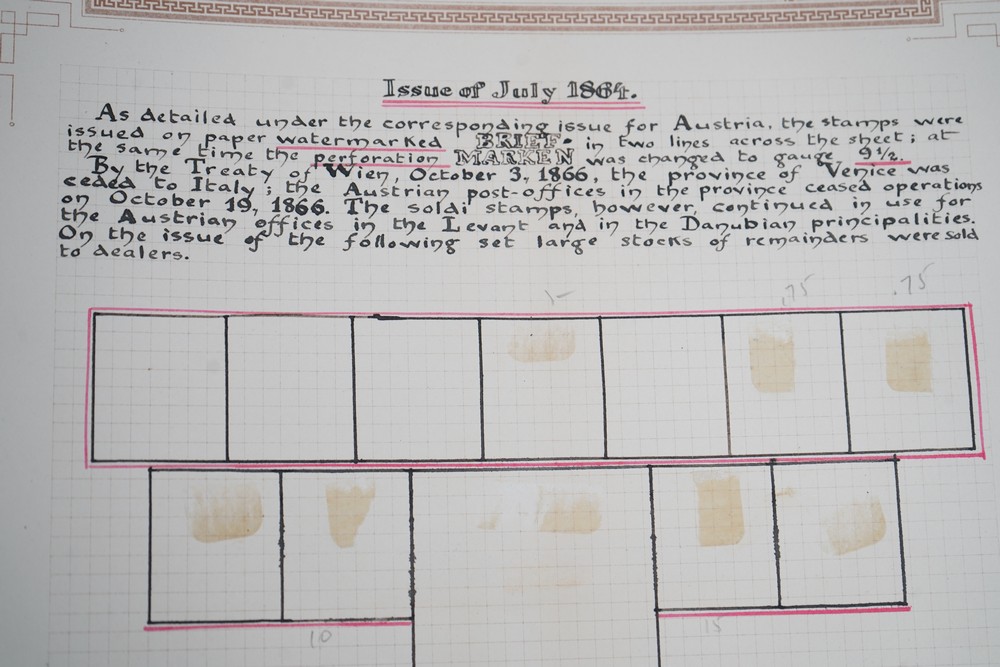 Issue of July 1864.
As detailed under the corresponding issue for Austria, the stamps were
issued on paper watermarked BRIEF- in two lines across the sheet; at
the same time the perforation MARKEN was changed to gauge 9½.
By the Treaty of Wien, October 3, 1866, the province of Venice was
ceded to Italy; the Austrian post-offices in the province ceased operations
on October 19, 1866. The soldi stamps, however, continued in use for
the Austrian offices in the Levant and in the Danubian principalities.
On the issue of the following set large stocks of remainders were sold
to dealers.
1- .75 .75
10 15